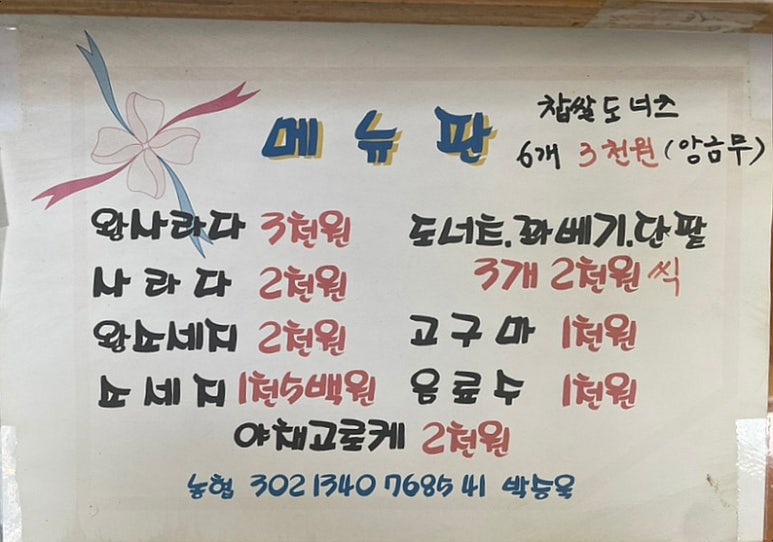 메뉴판
찹쌀도너츠
6개 3천원 (앙금무)
왕사라다 3천원
사라다 2천원
왕쇼세지 2천원
쇼세지 1천5백원
도너츠.꽈베기.단팥
3개 2천원씩
고구마 1천원
음료수 1천원
야채고로케 2천원
농협 302 1340 7685 41 박승욱